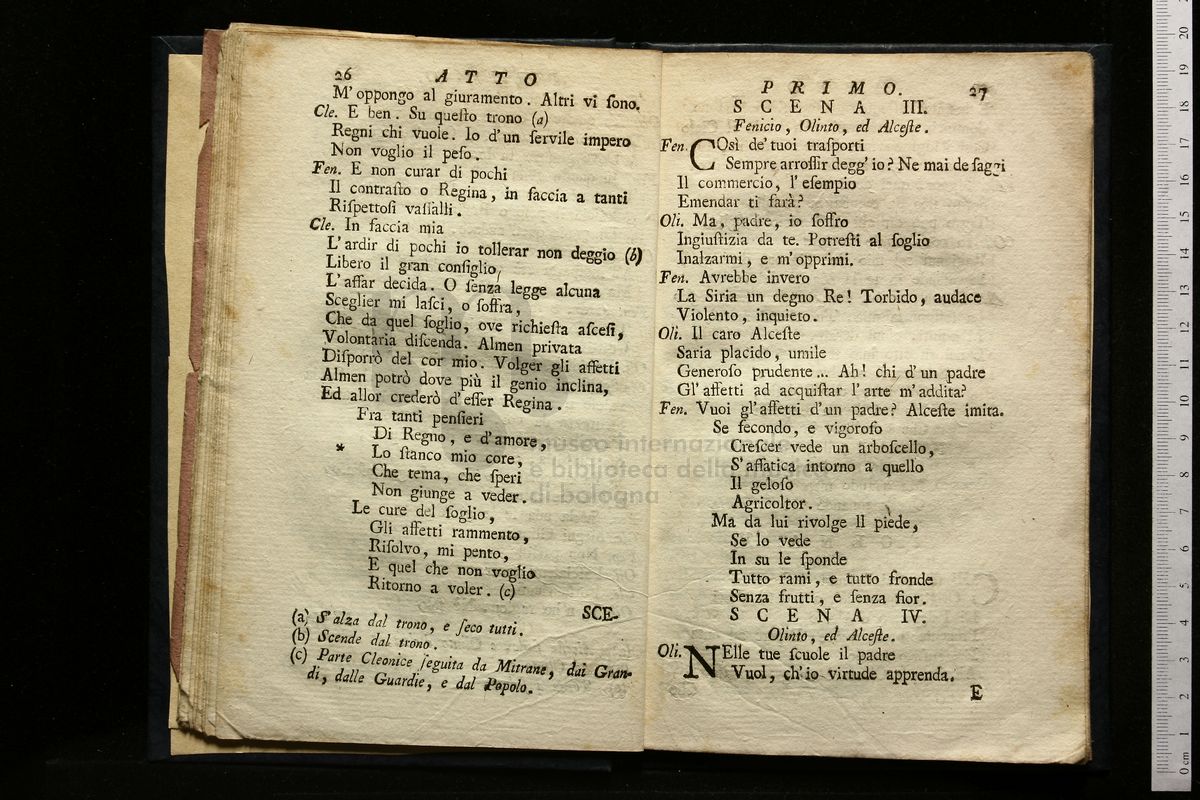 26 ATTO
M' oppongo al giuramento. Altri vi ſono.
Cle. E ben. Su queſto trono (a)
Regni chi vuole. Io d'un ſervile impero
Non voglio il peſo.
Fen. E non curar di pochi
Il contraſto o Regina, in faccia a tanti
Riſpettoſi vaſſalli.
Cle. In faccia mia
L'ardir di pochi io tollerar non deggio (b)
Libero il gran conſiglio,
L'affar decida. O ſenza legge alcuna
Sceglier mi laſci, o ſoffra,
Che da quel ſoglio, ove richieſta aſceſi,
Volontaria diſcenda. Almen privata
Diſporrò del cor mio. Volger gli affetti
Almen potrò dove più il genio inclina,
Ed allor crederò d'eſſer Regina.
Fra tanti penſieri
Di Regno, e d'amore,
* Lo ſtanco mio core,
Che tema, che ſperi
Non giunge a veder.
Le cure del ſoglio,
Gli affetti rammento,
Riſolvo, mi pento,
E quel che non voglio
Ritorno a voler. (c)
SCE-
(a) S'alza dal trono, e ſeco tutti.
(b) Scende dal trono.
(c) Parte Cleonice ſeguita da Mitrane, dai Gran-
di, dalle Guardie, e dal Popolo.
PRIMO. 27
SCENA III.
Fenicio, Olinto, ed Alceſte.
Fen. COsì de' tuoi traſporti
Sempre arroſſir degg' io? Ne mai de ſaggi
Il commercio, l'eſempio
Emendar ti farà?
Oli. Ma, padre, io ſoffro
Ingiuſtizia da te. Potreſti al ſoglio
Inalzarmi, e m'opprimi.
Fen. Avrebbe invero
La Siria un degno Re! Torbido, audace
Violento, inquieto.
Oli. Il caro Alceſte
Saria placido, umile
Generoſo prudente... Ah! chi d'un padre
Gl'affetti ad acquiſtar l'arte m'addita?
Fen. Vuoi gl'affetti d'un padre? Alceſte imita.
Se fecondo, e vigoroſo
Creſcer vede un arboſcello,
S'affatica intorno a quello
Il geloſo
Agricoltor.
Ma da lui rivolge Il piede,
Se lo vede
In su le ſponde
Tutto rami, e tutto fronde
Senza frutti, e ſenza fior.
SCENA IV.
Olinto, ed Alceſte.
Oli. NElle tue ſcuole il padre
Vuol, ch'io virtude apprenda.
E
museo internazionale
e biblioteca della musica
di bologna
0 cm 1 2 3 4 5 6 7 8 9 10 11 12 13 14 15 16 17 18 19 20